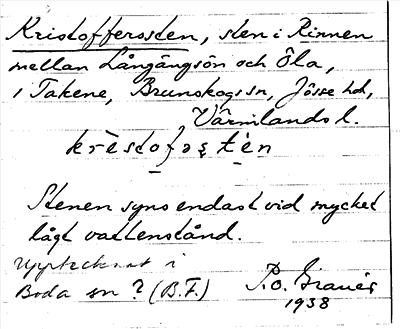 Kristofferosten, sten i Rinnen
mellan Långängsön och Öla,
i Takene, Brunskogs sn, Jösse hd,
Värmlands l.
Stenen syns endast vid mycket
lågt vattenstånd.
Upptecknat i
Boda sn? (B.F.)
P.O. Graner
1938